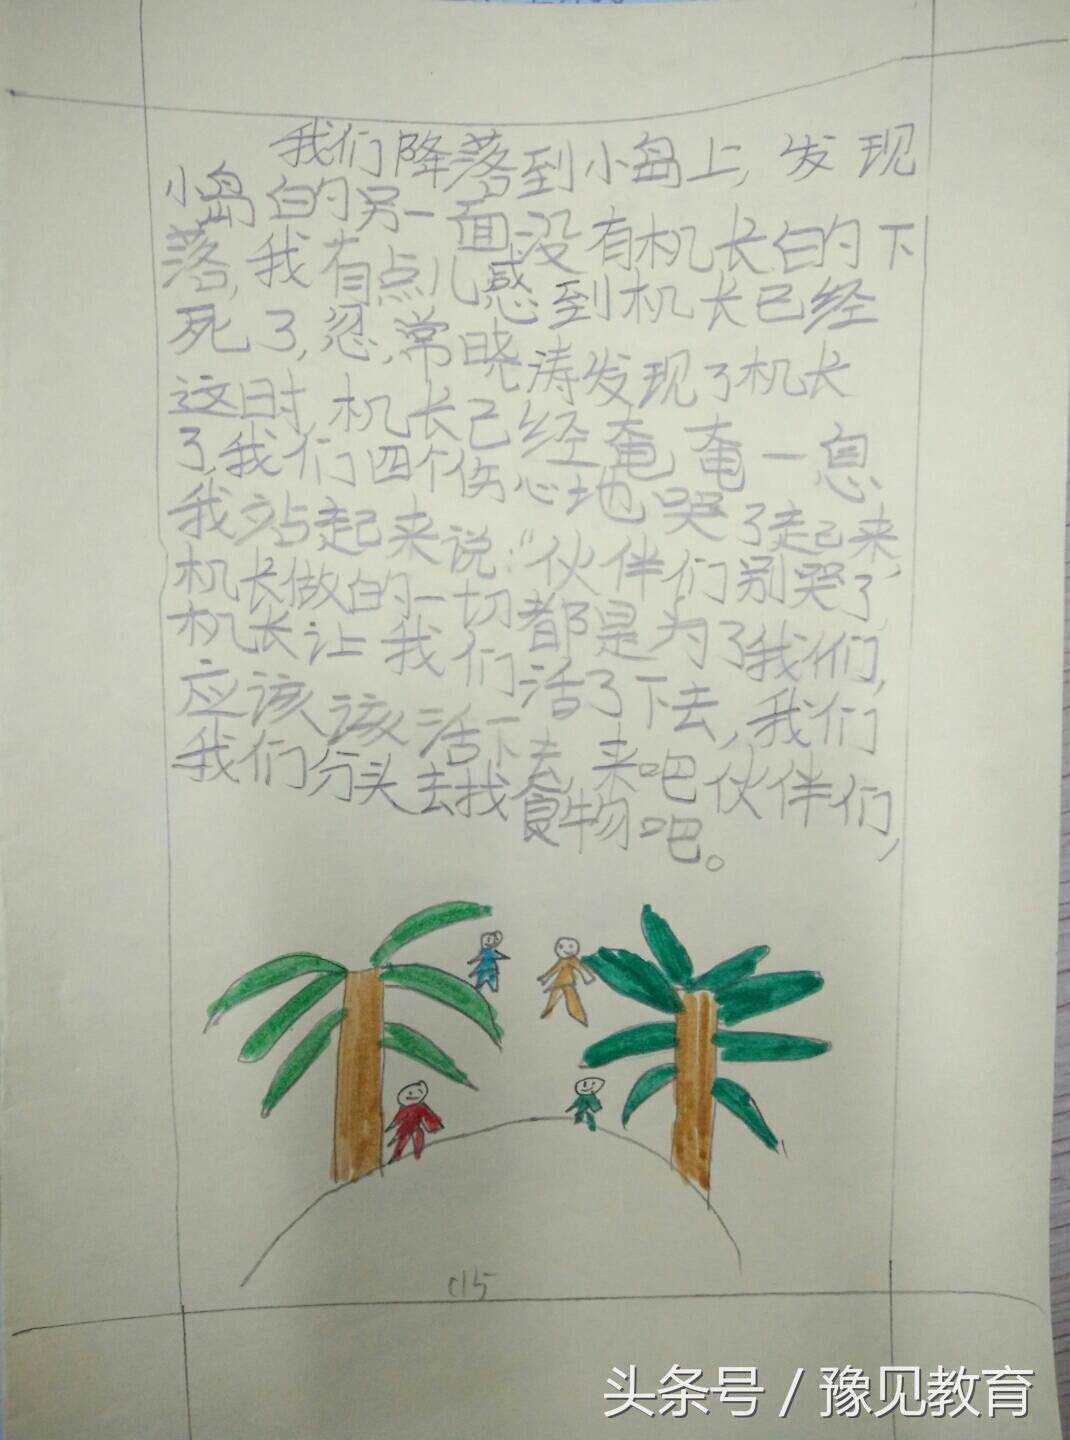 我们降落到小岛上,发现
小岛的另一面没有机长的下
落,我有点儿感到机长已经
死了,忍,常晓涛发现了机长
这时,机长已经奄奄一息
了,我们四个伤心地哭了起来,
我站起来说:“伙伴们别哭了
机长做的一切都是为了我们,
机长让我们活了下去,我们
应该该活下去,来吧伙伴们,
我们分头去找食物吧。
15
头条号 / 豫见教育